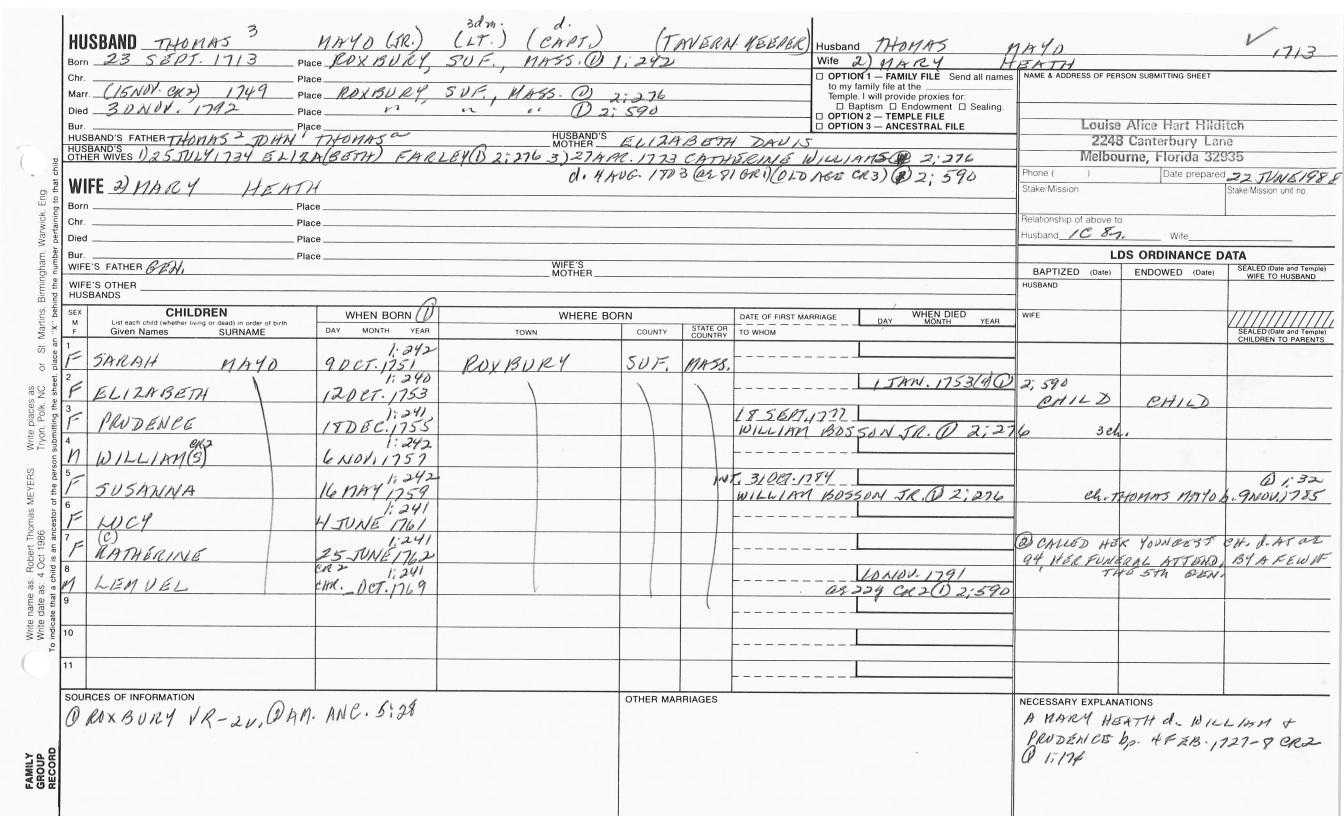 3dm. d.
HUSBAND THOMAS 3 MAYO (JR.) (LT.) (CAPT.) (TAVERN KEEPER)
Born 23 SEPT. 1713 Place ROXBURY, SUF., MASS. ① 1:242
Chr. Place
Marr. (15 NOV. CR2) 1749 Place ROXBURY, SUF., MASS. ① 2:276
Died 30 NOV. 1792 Place " " " ① 2:590
Bur. Place
HUSBAND'S FATHER THOMAS 2 JOHN 1 THOMAS a HUSBAND'S MOTHER ELIZABETH DAVIS
HUSBAND'S OTHER WIVES 1) 25 JULY 1734 ELIZA(BETH) FARLEY ① 2:276 3) 27 APR. 1773 CATHERINE WILLIAMS ① 2:276
d. 4 AUG. 1803 (ae 81 GR1) (OLD AGE CR3) ① 2:590
WIFE 2) MARY HEATH
Born Place
Chr. Place
Died Place
Bur. Place
WIFE'S FATHER GEN. WIFE'S MOTHER
WIFE'S OTHER HUSBANDS
Husband THOMAS MAYO 1713
Wife 2) MARY HEATH
OPTION 1 — FAMILY FILE Send all names
to my family file at the
Temple. I will provide proxies for:
Baptism Endowment Sealing.
OPTION 2 — TEMPLE FILE
OPTION 3 — ANCESTRAL FILE
NAME & ADDRESS OF PERSON SUBMITTING SHEET
Louise Alice Hart Hilditch
2248 Canterbury Lane
Melbourne, Florida 32935
Phone ( ) Date prepared 22 JUNE 1988
Stake/Mission Stake/Mission unit no.
Relationship of above to
Husband 1C 8r. Wife
LDS ORDINANCE DATA
BAPTIZED (Date) ENDOWED (Date) SEALED (Date and Temple) WIFE TO HUSBAND
HUSBAND
WIFE
SEALED (Date and Temple) CHILDREN TO PARENTS
SEX M F CHILDREN WHEN BORN ① WHERE BORN DATE OF FIRST MARRIAGE WHEN DIED
List each child (whether living or dead) in order of birth
Given Names SURNAME DAY MONTH YEAR TOWN COUNTY STATE OR COUNTRY TO WHOM DAY MONTH YEAR
1 1:242
F SARAH MAYO 9 OCT. 1751 ROXBURY SUF. MASS.
2 1:240 1 JAN. 1753/4 ① 2:590
F ELIZABETH 12 OCT. 1753 CHILD CHILD
3 1:241 18 SEPT. 1777
F PRUDENCE 18 DEC. 1755 WILLIAM BOSSON JR. ① 2:276 3ch.
4 CR2 1:242
M WILLIAM(S) 6 NOV. 1757
5 1:242 INT. 31 OCT. 1784 ① 1:32
F SUSANNA 16 MAY 1759 WILLIAM BOSSON JR. ① 2:276 ch. THOMAS MAYO b. 9 NOV. 1785
6 1:241
F LUCY 4 JUNE 1761
7 (C) 1:241 ② CALLED HER YOUNGEST CH. d. AT ae
F KATHERINE 25 JUNE 1762 94, HER FUNERAL ATTEND, BY A FEW OF
8 CR2 1:241 10 NOV. 1791 THE 5TH GEN.
M LEMUEL CHR. _ OCT. 1769 ae 22y CR2 ① 2:590
9
10
11
SOURCES OF INFORMATION
① ROXBURY VR-2v, ② AM. ANC. 5:28
OTHER MARRIAGES
NECESSARY EXPLANATIONS
A MARY HEATH d. WILLIAM &
PRUDENCE bp. 4 FEB. 1727-8 CR2
① 1:174
Write name as: Robert Thomas MEYERS Write places as: Tryon, Polk, NC or St Martins, Birmingham, Warwick, Eng
Write date as: 4 Oct 1986
To indicate that a child is an ancestor of the person submitting the sheet, place an "X" behind the number pertaining to that child
FAMILY
GROUP
RECORD